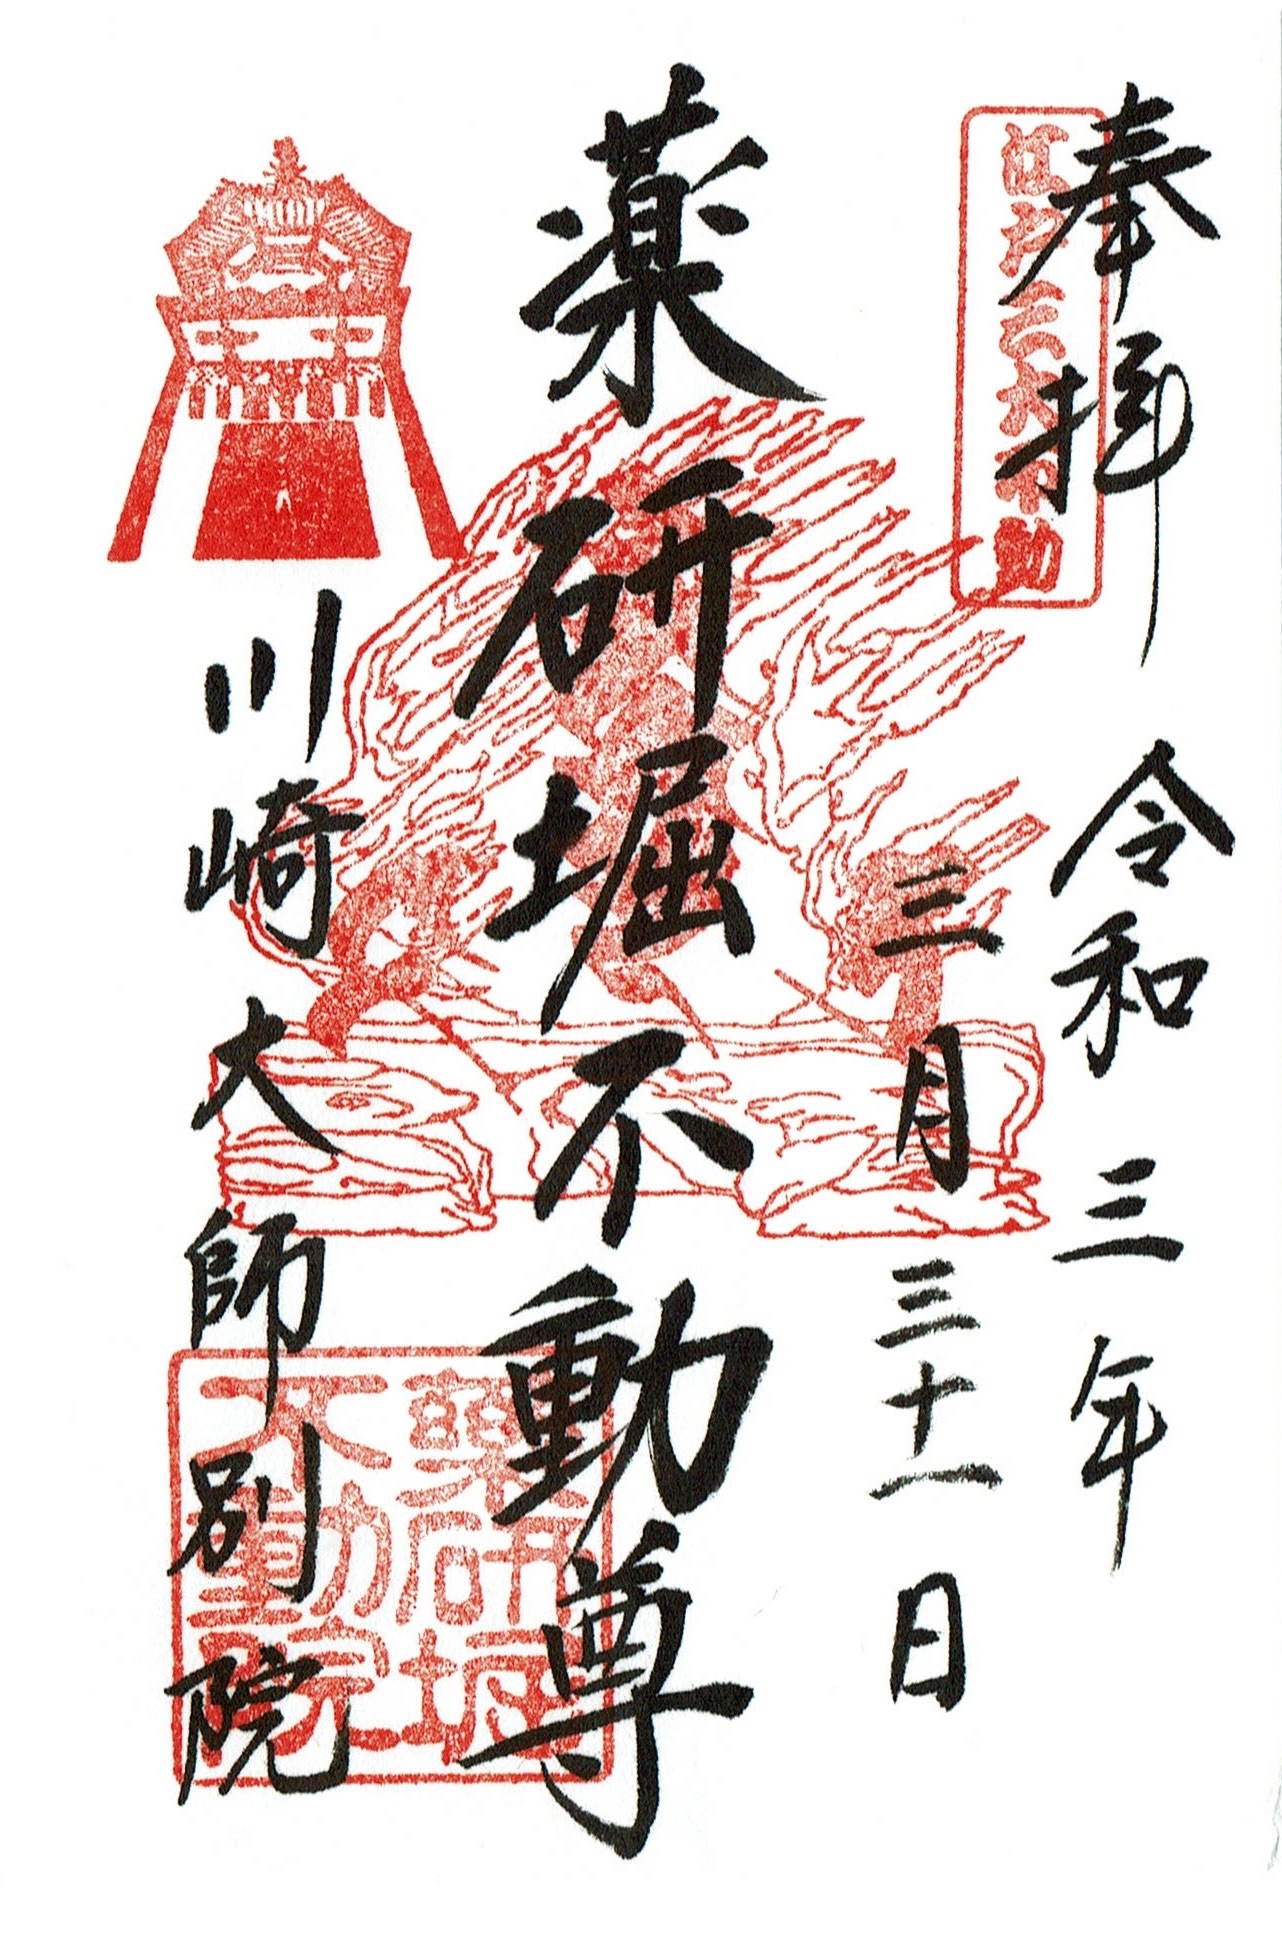 奉拝
江戸三大不動
令和三年
三月三十一日
薬研堀不動尊
川崎大師別院
薬研堀
不動院